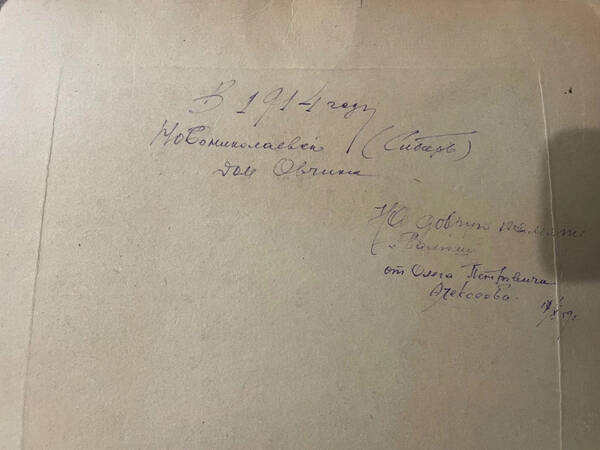 В 1914 году
Новониколаевск (Сибирь)
дом Овчин
На добрую память
от Олега Петровича
Алексеева.